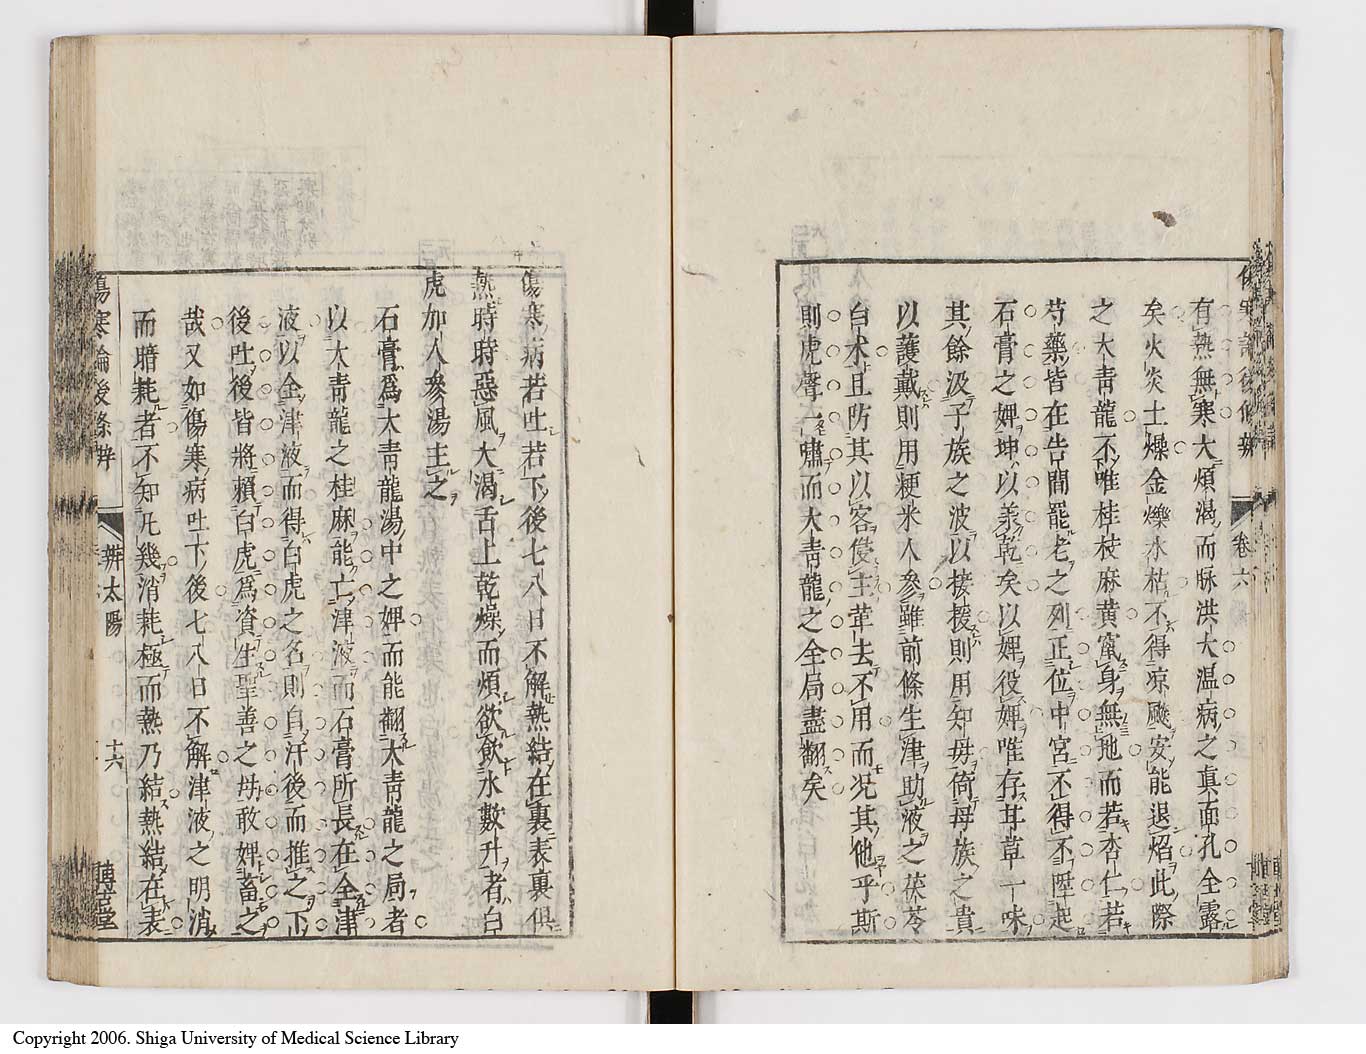 有熱無寒大煩渴而脉洪大温病之真面孔全露
矣火炎土燥金爍水枯不得凉颷安能退熖此際
之大青龍不唯桂枝麻黄竄身無地而若杏仁若
芍藥皆在告閒罷老之列正位中宮不得不陞起
石膏之婢坤以承乾矣以婢役婢唯存耳草一味
其餘汲子族之波以接援則用知母倚母族之貴
以護戴則用粳米人參雖前條生津助液之茯苓
白朮且防其以客侵主葷去不用而况其他乎斯
則虎聲一嘯而大青龍之全局盡翻矣
卷六
傷寒病若吐若下後七八日不解熱結在裏表裏俱
熱時時惡風大渴舌上乾燥而煩欲飲水數升者白
虎加人參湯主之
石膏爲大青龍湯中之婢而能翻大青龍之局者
以大青龍之桂麻能亡津液而石膏所長在全津
液以全津液而得白虎之名則自汗後而推之下
後吐後皆將賴白虎爲資生聖善之母敢婢畜之
哉又如傷寒病吐下後七八日不解津液之明消
而暗耗者不知凡幾消耗極而熱乃結熱結在表
傷寒論後條辨
辨太陽
十六
Copyright 2006. Shiga University of Medical Science Library